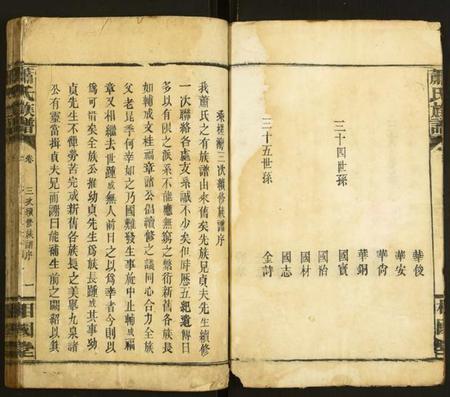 蕭氏族譜
華俊
華安
華尚
華銅
三十四世孫
國寳
國治
國材
國志
三十五世孫
金詩
相國堂
三次續修族譜序
我蕭氏之有族譜由來舊矣先族兄貞夫先生續修
一次聯絡各處支系誠不少矣但年曆五紀遺傳日
多以有限之派系不能應無窮之繁衍新舊各族長
如輔成文桂福章諸公倡議續修之議同心合力全族
父老昆季何幸如之乃國難發生事無何中止輔成福
章又相繼去世踵成無人前日之以為幸者今則以
為可惜矣全族公推幼貞先生為族長踵成其事幼
貞先生不憚勞苦完成新舊各族長之美舉九泉諸
公有靈當揖貞夫兄而謂曰能補生前之闕紹以其
蕭氏族譜
卷
三次續修族譜序
一
相國堂